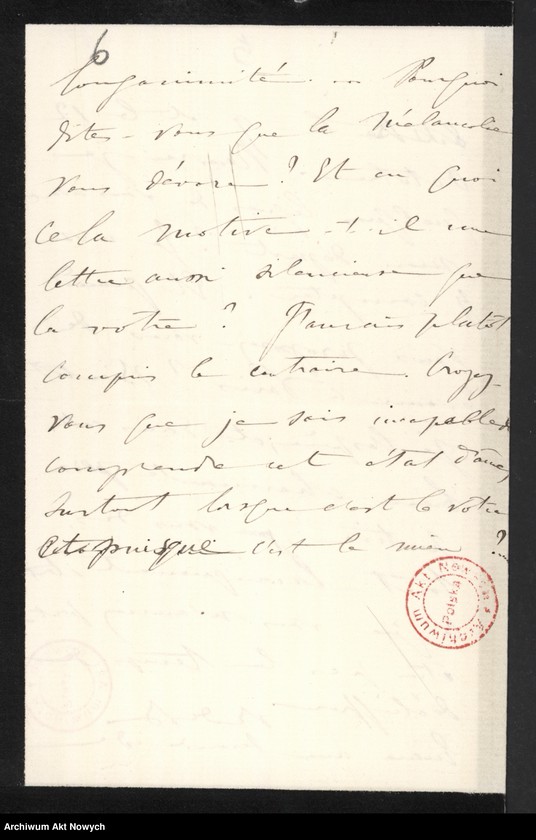 6
longanimité. ... Pourquoi
dites-vous que la mélancolie
vous dévore ? Et en quoi
cela motive-t-il une
lettre aussi silencieuse que
la votre ? J'aurais plutôt
compris le contraire. Croyez-
vous que je sois incapable de
comprendre cet état d'âme,
surtout lorsque c'est le votre
puisque c'est le mien ?...
Archiwum Akt Nowych
Polska
Archiwum Akt Nowych